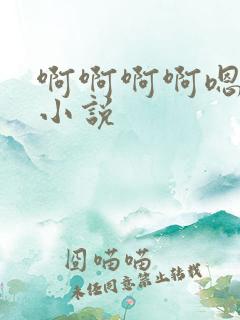 啊啊啊啊嗯
小说
囧喵喵
未经同意禁止转载